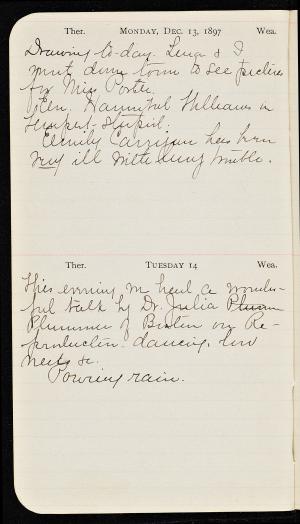 Ther. MONDAY, DEC. 13, 1897 Wea.
Drawing to-day. Lena & I
went down town to see pictures
by Miss Porter.
Gen. Hannibal Williams in
Tempest - stupid.
Emily Carrigan has been
very ill with lung trouble.
Ther. TUESDAY 14 Wea.
This evening we heard a wonder-
ful talk by Dr. Julia Plumm
Plummer of Boston on Re-
production. dancing, low
necks &c.
Pouring rain.